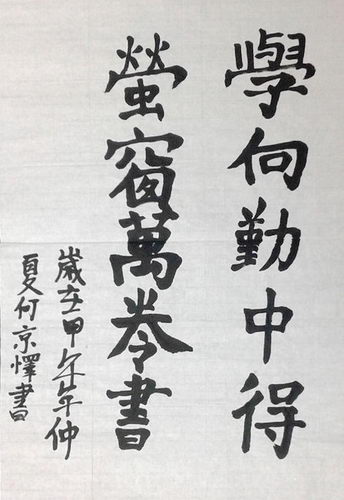 學向勤中得
螢窗萬卷書
歲在甲午年仲
夏何京懌書